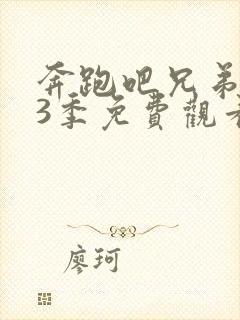 奔跑吧兄弟
3季免費觀看
廖珂